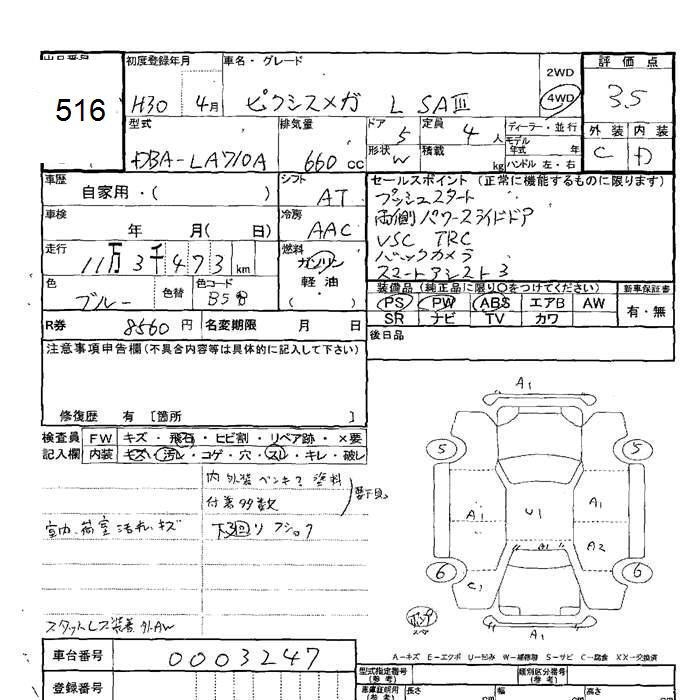 516
初度登録年月 車名・グレード 2WD 4WD 評価点
H30 4月 ピクシスメガ L SAⅢ 3.5
型式 排気量 ドア 5 定員 4人 ディーラー・並行 外装 内装
モデル年式 年
DBA-LA710A 660 CC 形状 W 積載 kg ハンドル 左・右 C D
車歴 自家用・( ) シフト AT
セールスポイント (正常に機能するものに限ります)
プッシュスタート
両側パワースライドドア
VSC TRC
バックカメラ
スマートアシスト3
車検 年 月( 日) 冷房 AAC
走行 11万3千473km 燃料 ガソリン 軽油
色 ブルー 色替 色コード
装備品(純正品に限り○をつけてください) 新車保証書
PS PW ABS エアB AW 有・無
SR ナビ TV カワ
R券 8560円 名変期限 月 日
後日品
注意事項申告欄(不具合内容等は具体的に記入して下さい)
修復歴 有 [箇所 ]
検査員記入欄 FW キズ・飛石・ヒビ割・リペア跡・×要
内装 キズ・汚れ・コゲ・穴・スレ・キレ・破レ
内外装ペンキ?塗料
付着多数
室内、荷室汚れ、キズ
下回りフショク
スタットレス装着 外AW
A1
5 5
A1 U1 A1
A2
6 6
C1
A1
A-キズ E-エクボ U-凹み W-補修跡 S-サビ C-腐食 XX-交換済
車台番号 0003247
型式指定番号(参考) 類別区分番号(参考)
登録番号 車庫証明用(参考) 長さ cm 幅 cm 高さ cm